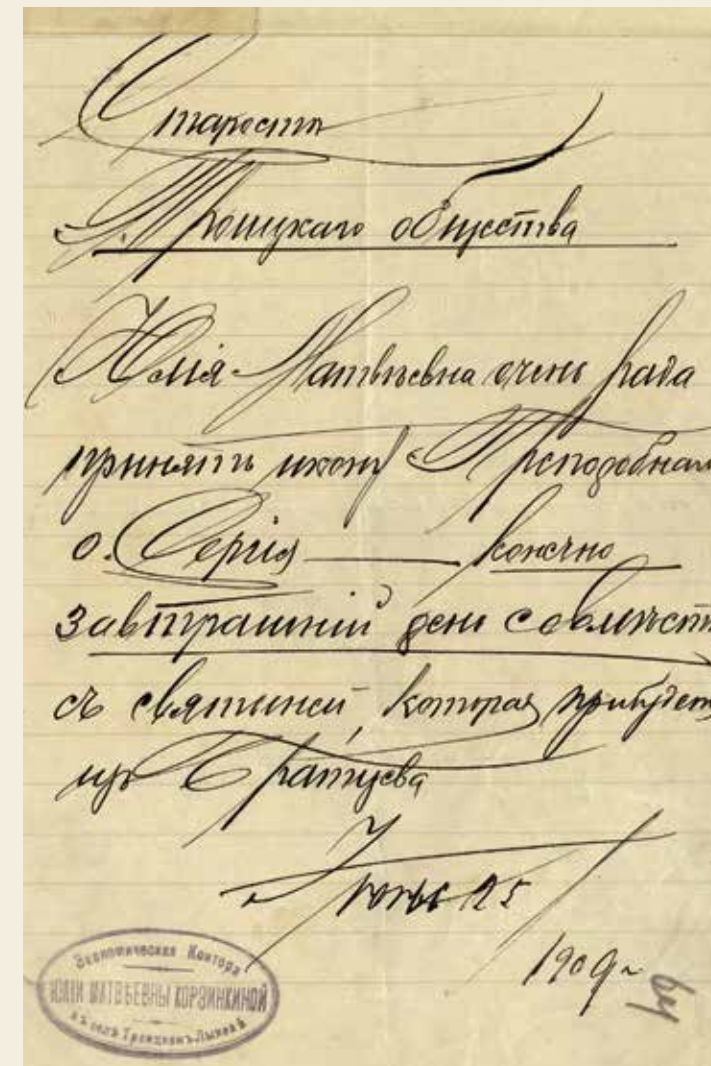 Старостѣ
Троицкаго общества
Юлія Матвѣевна очень рада
принять икону Преподобнаго
о. Сергія — конечно
завтрашній день совмѣстн
съ святыней, которая прибудет
изъ Братцева
25
1909 г
Экономическая Контора
ЮЛІИ МАТВѢЕВНЫ КОРЗИНКИНОЙ
въ селѣ Троицкомъ-Лыковѣ